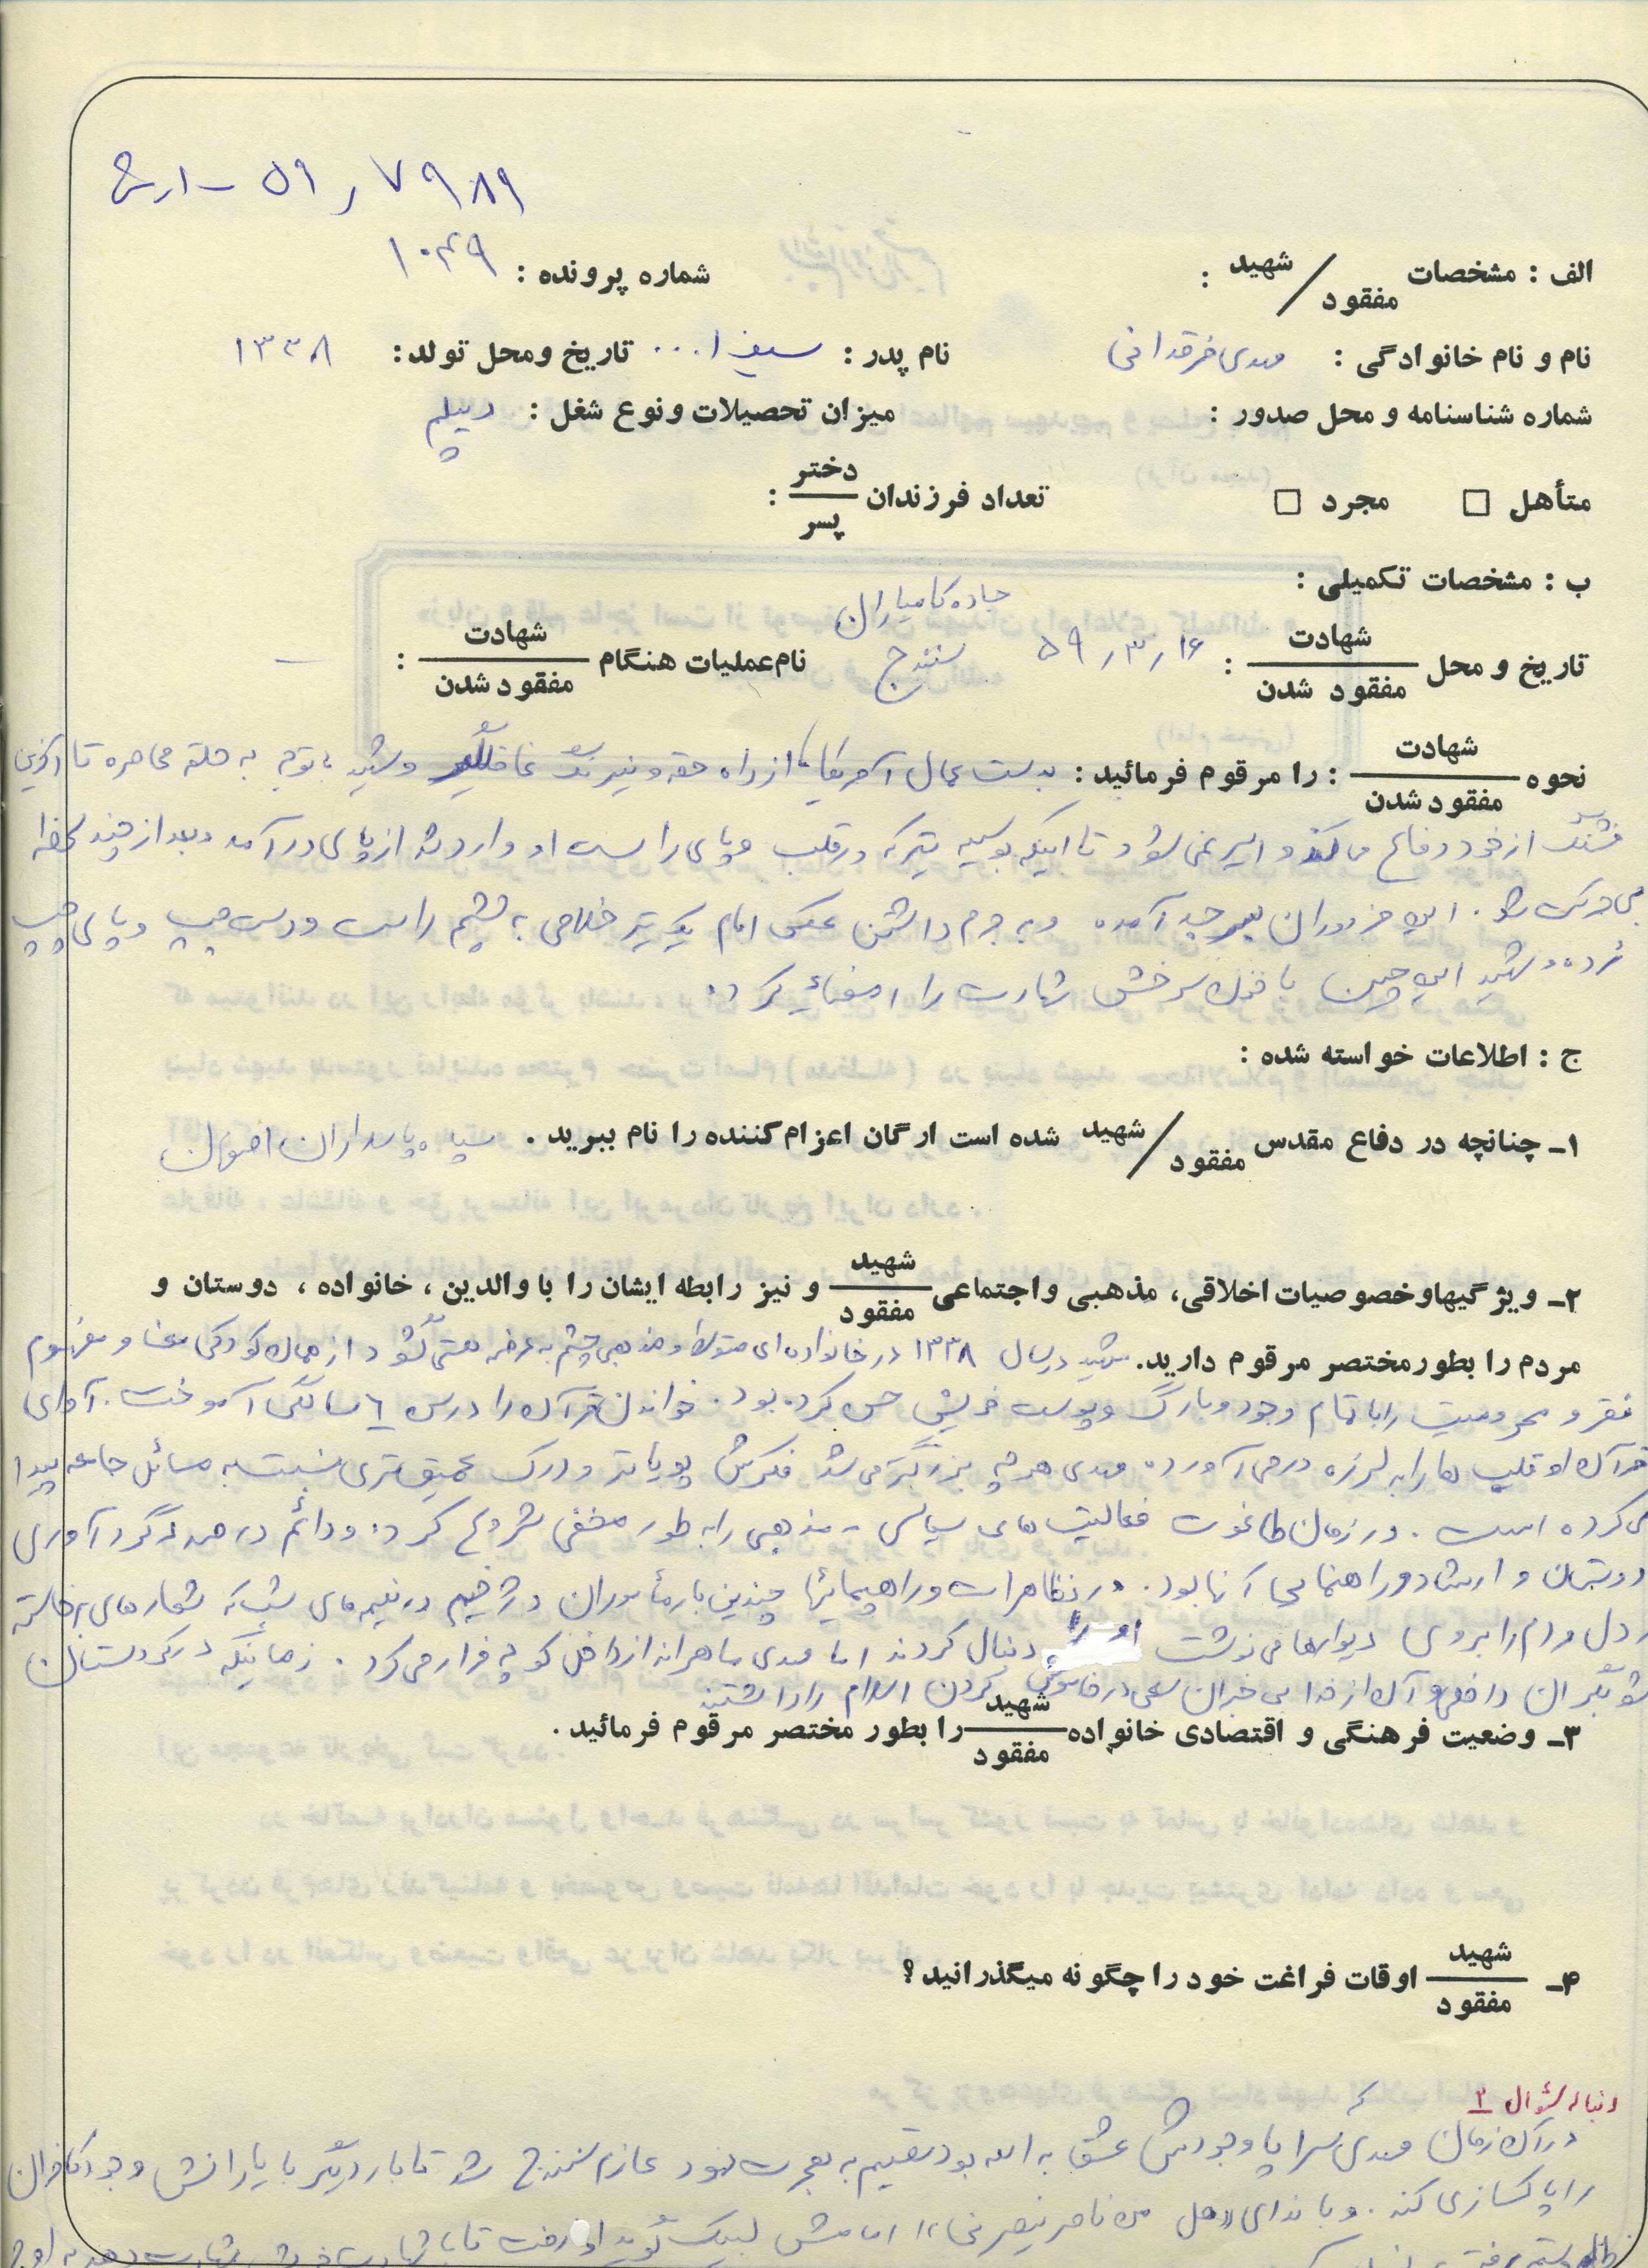 ۷۹۸۹ ر ۵۹ - ارش
الف : مشخصات شهید / مفقود : شماره پرونده : ۱۰۴۹
نام و نام خانوادگی : مهدی فرقدانی نام پدر : سیف ا... تاریخ ومحل تولد : ۱۳۳۸
شماره شناسنامه و محل صدور : میزان تحصیلات ونوع شغل : دیپلم
متأهل □ مجرد □ تعداد فرزندان دختر / پسر :
ب : مشخصات تکمیلی :
تاریخ و محل شهادت / مفقود شدن : ۱۶ ر ۳ ر ۵۹ جاده کامیاران سنندج نام عملیات هنگام شهادت / مفقود شدن : —
نحوه شهادت / مفقود شدن : را مرقوم فرمائید : بدست عمال آمریکا، از راه حقه و نیرنگ غافلگیر و شهید با توجه به حلقه محاصره تا آخرین
فشنگ از خود دفاع می کند و اسیر نمی شود تا اینکه بوسیله تیر که در قلب و پای راست او وارد شد از پای در آمد و بعد از چند لحظه
بی حرکت شد . این مزدوران بر سر جسد آمده و به جرم داشتن عکس امام یک تیر خلاصی به چشم راست و دست چپ و پای چپ
زده و شهید این چنین با خون سرخش شهادت را امضاء کرد .
ج : اطلاعات خواسته شده :
۱ـ چنانچه در دفاع مقدس شهید / مفقود شده است ارگان اعزام کننده را نام ببرید . سپاه پاسداران اصفهان
۲ـ ویژگیها وخصوصیات اخلاقی، مذهبی واجتماعی شهید / مفقود و نیز رابطه ایشان را با والدین ، خانواده ، دوستان و
مردم را بطور مختصر مرقوم دارید. شهید در سال ۱۳۳۸ در خانواده ای متوسط و مذهبی چشم به عرصه هستی گشود از همان کودکی معنا و مفهوم
فقر و محرومیت را با تمام وجود و با رگ و پوست خویش حس کرده بود . خواندن قرآن را در سن ۶ سالگی آموخت . آوای
قرآن او قلب ها را به لرزه در می آورد . مهدی هر چه بزرگتر می شد فکرش پویاتر و درک عمیق تری نسبت به مسائل جامعه پیدا
می کرده است . در زمان طاغوت فعالیت های سیاسی - مذهبی را به طور مخفی شروع کرد . و دائم در صدد گردآوری
دوستان و ارشاد و راهنمایی آنها بود . در تظاهرات و راهپیمائیها چندین بار مأموران دژخیم در نیمه های شب که شعارهای برخاسته
از دل مردم را بروی دیوارها می نوشت او را دنبال کردند اما مهدی ماهرانه از داخل کوچه فرار می کرد . زمانیکه در کردستان
شورشگران داخلی و آن از خدا بی خبران سعی در خاموش کردن اسلام را داشتند
۳ـ وضعیت فرهنگی و اقتصادی خانواده شهید / مفقود را بطور مختصر مرقوم فرمائید .
۴ـ شهید / مفقود اوقات فراغت خود را چگونه میگذرانید ؟
دنباله سؤال ۲
در آن زمان مهدی که سراپا وجودش عشق به الله بود تصمیم به هجرت نمود عازم سنندج شد تا بار دیگر با یارانش وجود کافران
را پاکسازی کند . و با ندای «هل من ناصر ینصرنی» امامش لبیک گوید او رفت تا با